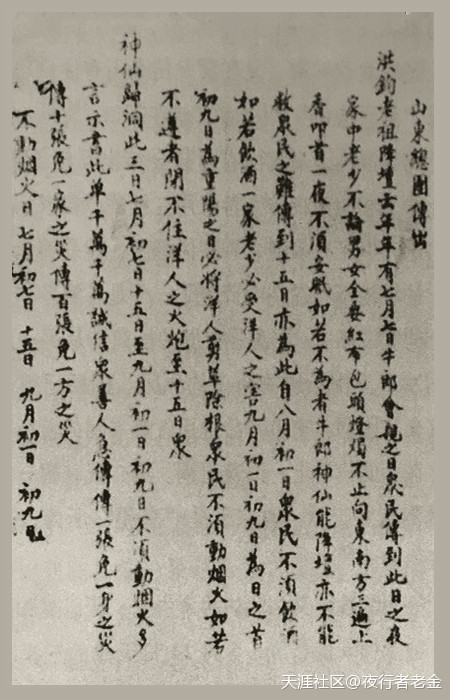 山東總團傳出
洪鈞老祖降壇云年年有七月七日牛郎會親之日眾民傳到此日之夜
家中老少不論男女全要紅布包頭燈燭不止向東南方三遍上
香叩首一夜不須安眠如若不為者牛郎神仙能降壇亦不能
救眾民之難傳到十五日亦為此自八月初一日眾民不須飲酒
如若飲酒一家老少必受洋人之害九月初一日初九日為日之首
初九日為重陽之日必將洋人剪草除根眾民不須動烟火如若
不遵者閉不住洋人之火炮至十五日眾
神仙歸洞此三日七月初七日十五日至九月初一日初九日不須動烟火多
言示書此单千萬千萬誠信眾善人急傳傳一張免一身之災
傳十張免一家之災傳百張免一方之災
不動烟火日七月初七日 十五日 九月初一日 初九日
天涯社区@夜行者老金